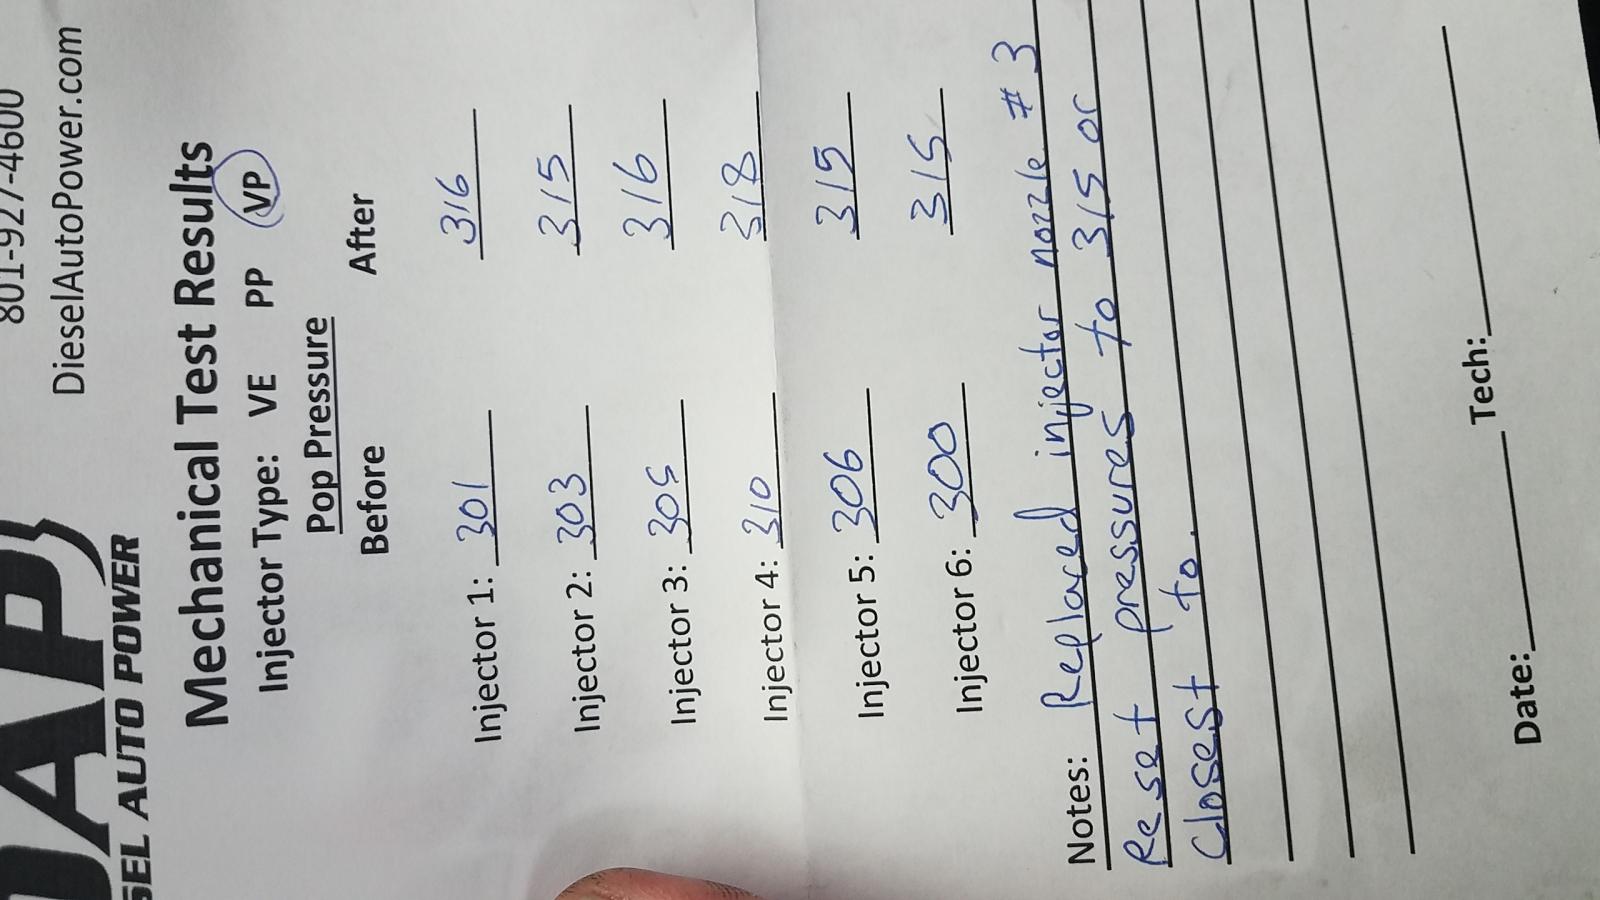 801-927-4600
DieselAutoPower.com
DAP
SEL AUTO POWER
Mechanical Test Results
Injector Type: VE PP VP
Pop Pressure
Before After
Injector 1: 301 316
Injector 2: 303 315
Injector 3: 305 316
Injector 4: 310 318
Injector 5: 306 315
Injector 6: 300 315
Notes: Replaced injector nozzle #3
Reset pressures to 315 or
Closest to.
Date: Tech: